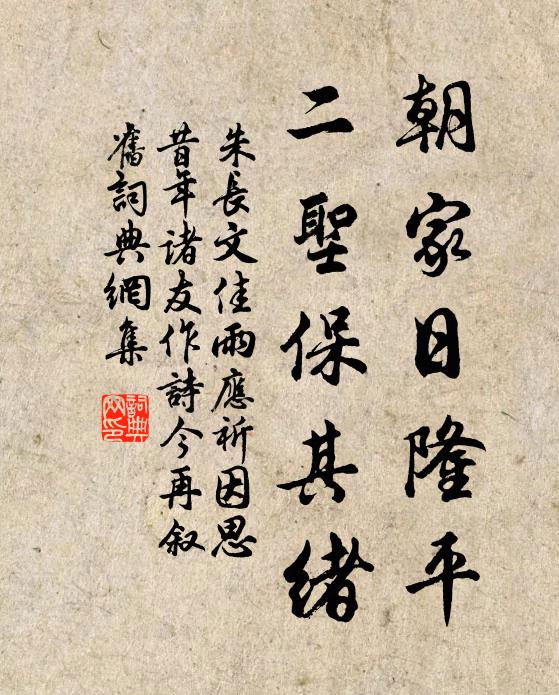 朝家日隆平
二聖保其緒
朱長文佳雨應祈因思
昔年諸友作詩今再叙
舊詞典網集
詞典
网印